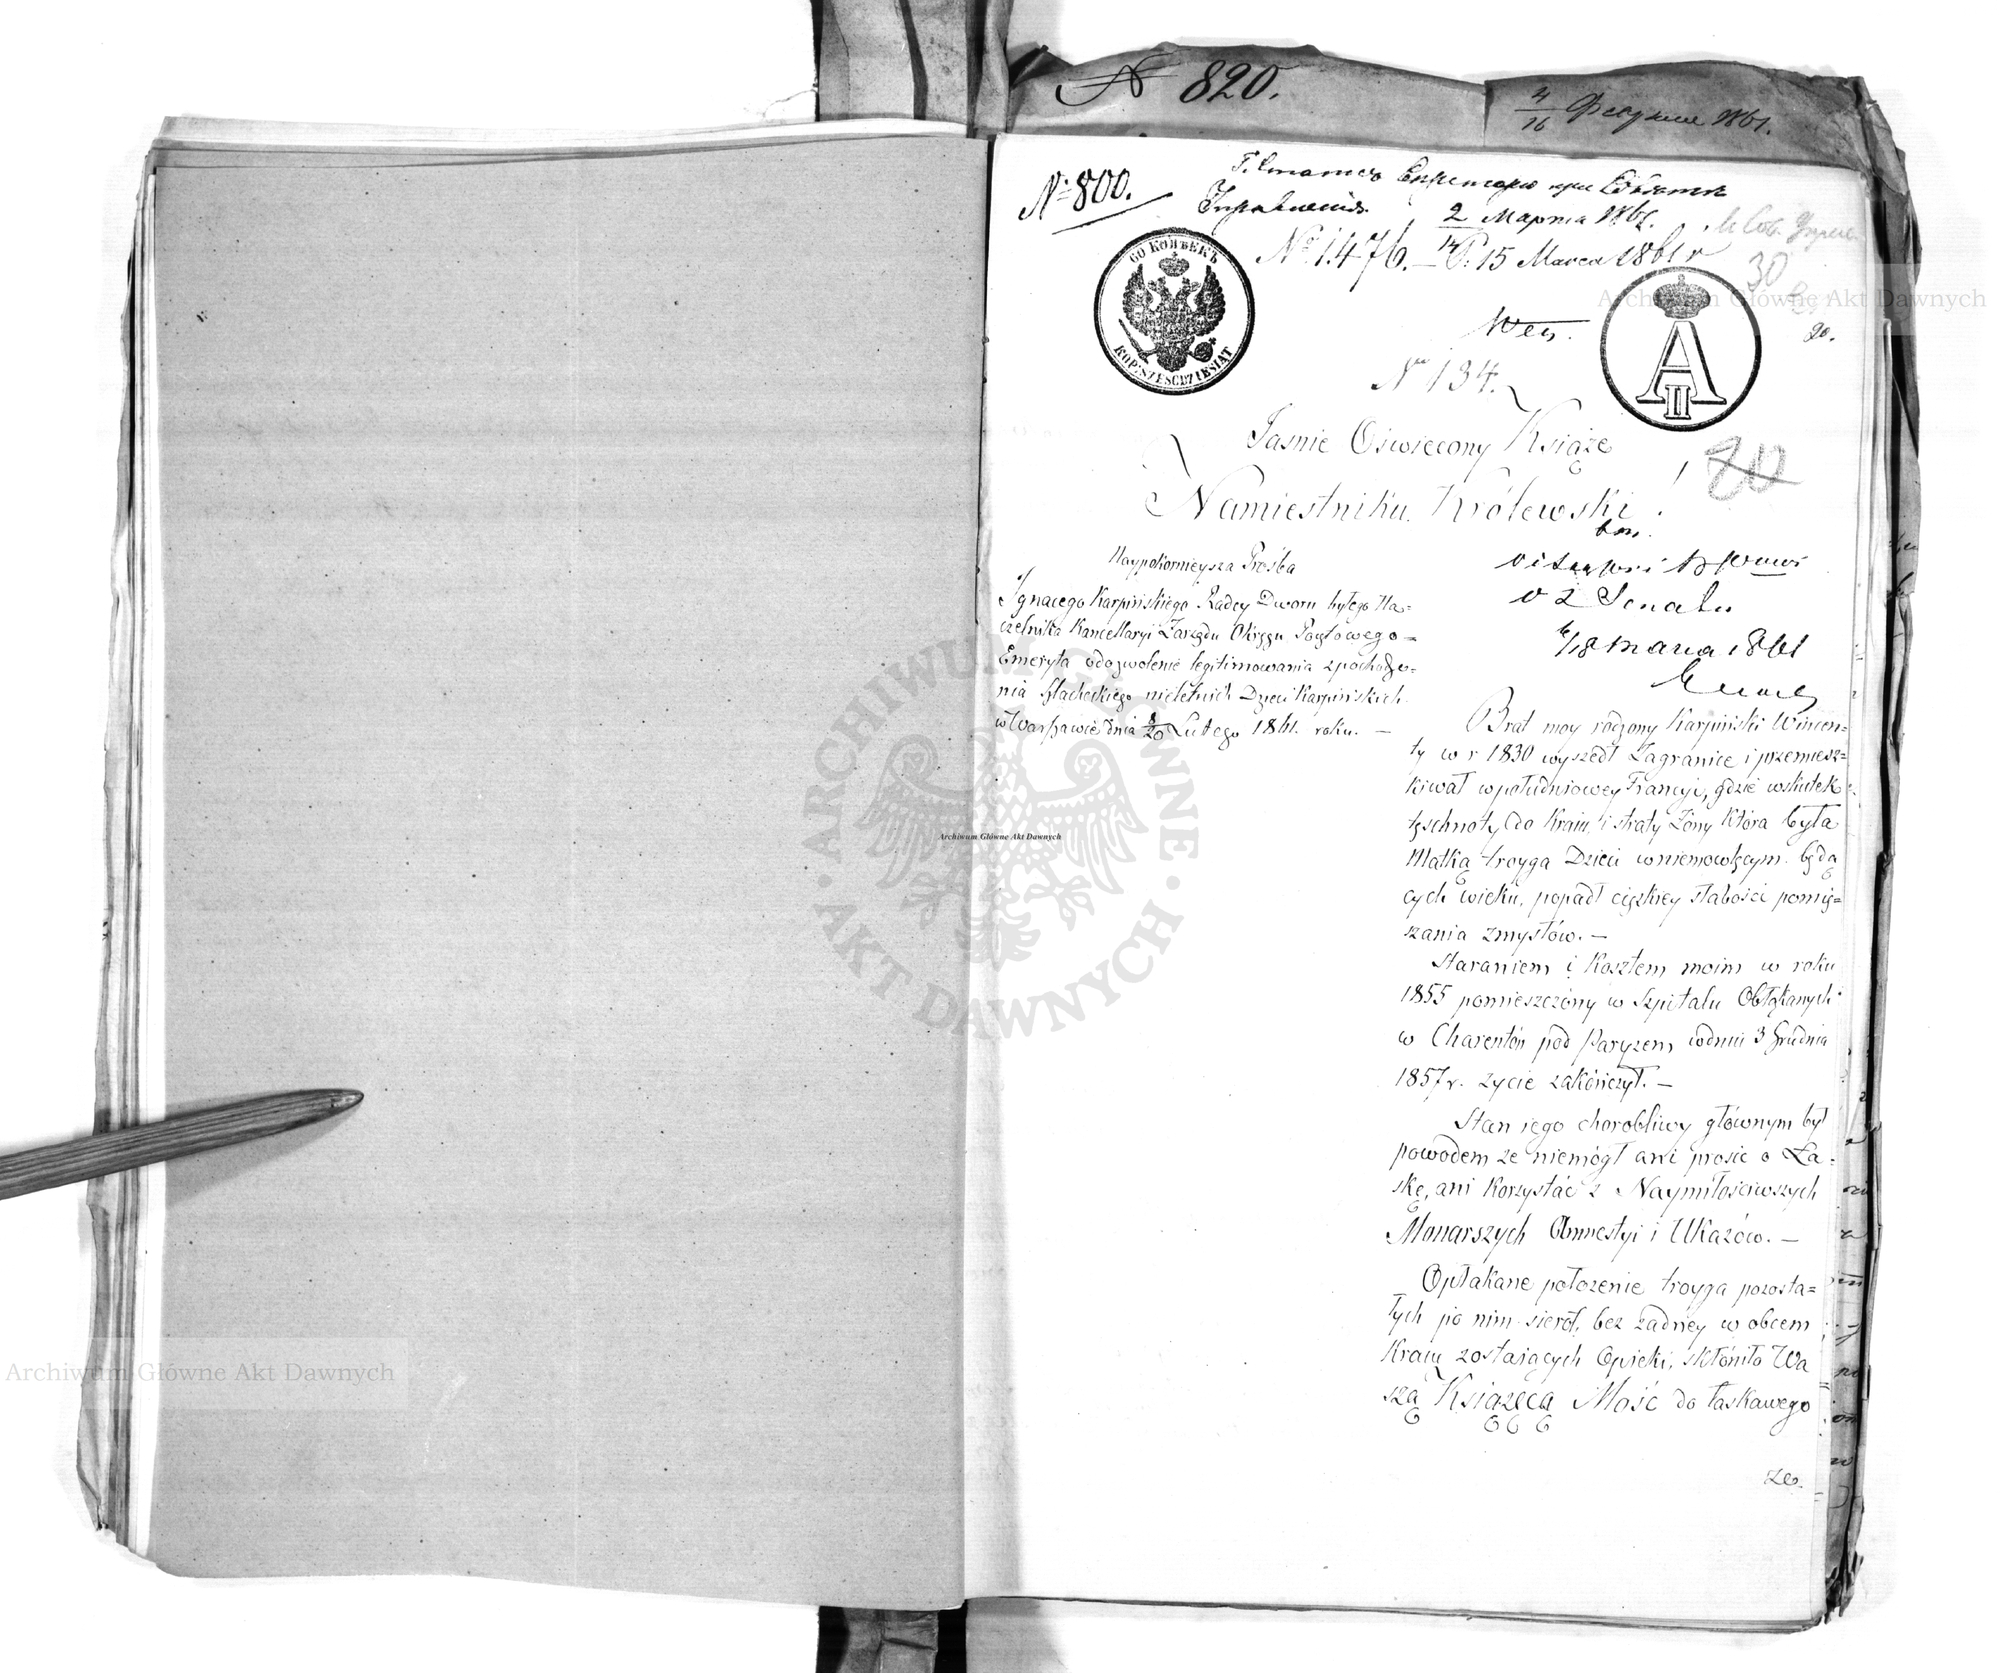 N 820.
4/16 Февраля 1861.
№ 800.
Г. Статсъ Секретарю при Совѣтѣ
Управленія.
2/14 Марта 1861.
№ 1476. — P: 15 Marca 1861 r
30
60 КОПѢЕКЪ
KOP: SZEŚĆDZIESIĄT
A II
20.
№ 134.
Jaśnie Oświecony Książe
Namiestniku Królewski!
Naypokornieysza Prośba
Ignacego Karpińskiego Radcy Dworu byłego Na=
czelnika Kancellaryi Zarządu Okręgu Pocztowego=
Emeryta o dozwolenie legitimowania z pochodze=
nia Szlacheckiego nieletnich Dzieci Karpińskich
w Warszawie dnia 8/20 Lutego 1861. roku. —
Senatu
6/18 marca 1861
Brat moy rodzony Karpiński Wincen=
ty w r 1830 wyszedł Zagranice i przemiesz=
kiwał w południowey Francyi, gdzie wskutek
tęschnoty do Kraiu, i straty Żony która była
Matką troyga Dzieci w niemowlęcym będą
cych wieku, popadł ciężkiey słabości pomię=
szania zmysłów. —
Staraniem i Kosztem moim w roku
1855 pomieszczóny w Szpitalu Obłąkanych
w Charentón pod Paryzem w dniu 3 Grudnia
1857 r. życie zakończył. —
Stan iego chorobliwy głównym był
powodem że niemógł ani prosić o Ła=
skę, ani Korzystać z Naymiłościwszych
Monarszych Amnestyi i Ukazów. —
Opłakane położenie troyga pozosta=
łych po nim sierót, bez żadney w obcem
Kraiu zostaiących Opieki, skłóniło Wa
szą Książęcą Mość do łaskawego
ze
Archiwum Główne Akt Dawnych
Archiwum Główne Akt Dawnych
Archiwum Główne Akt Dawnych
ARCHIWUM GŁÓWNE
• AKT DAWNYCH •